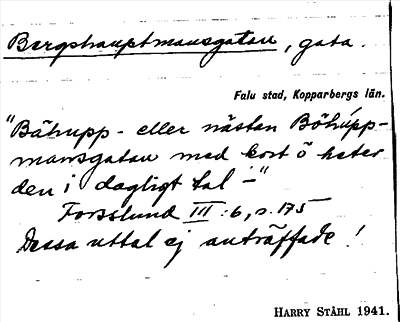 Bergshauptmansgatan, gata.
Falu stad, Kopparbergs län.
"Bähupp- eller nästan Böhupp-
mansgatan med kort ö heter
den i dagligt tal –"
Forsslund III:6, s. 175
Dessa uttal ej anträffade!
HARRY STÅHL 1941.